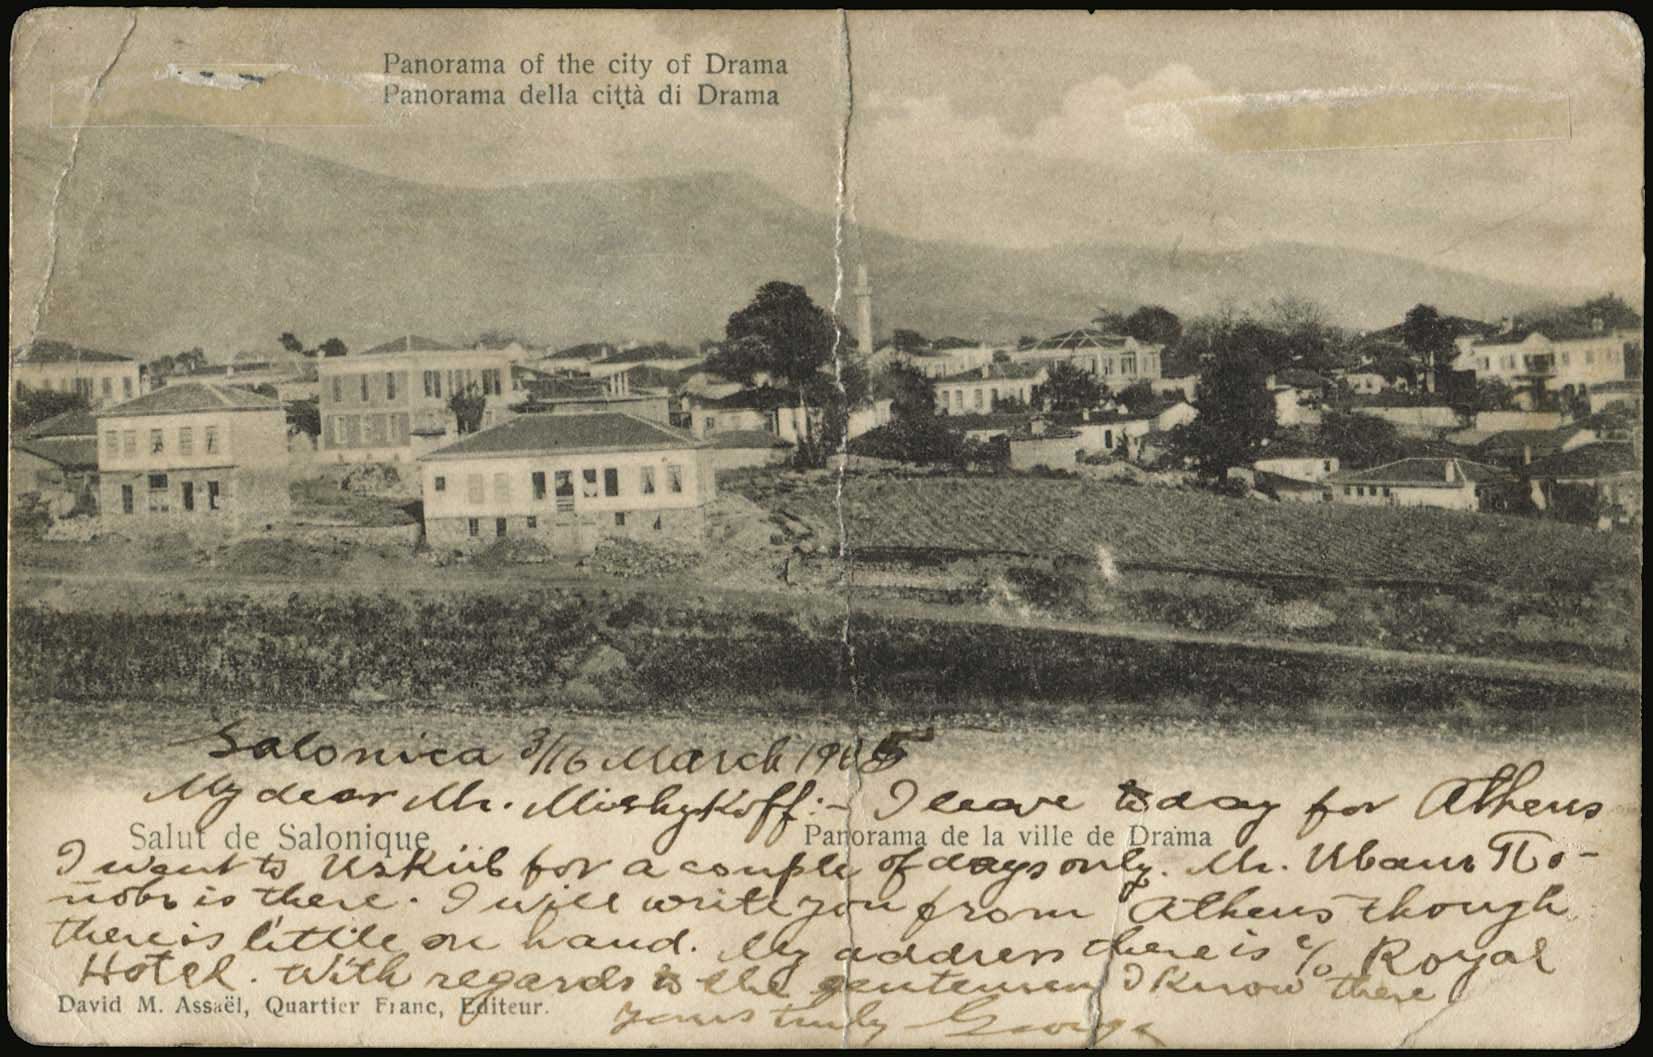 Panorama of the city of Drama
Panorama della città di Drama
Salonica 3/16 March 1905
My dear Mr. Mishykoff:- I leave today for Athens
Salut de Salonique
Panorama de la ville de Drama
I went to Uskub for a couple of days only. Mr.
is there. I will write you from Athens though
there is little on hand. My address there is c/o Royal
Hotel. With regards to the gentemen I know there
David M. Assaël, Quartier Franc, Editeur.
Yours truly George